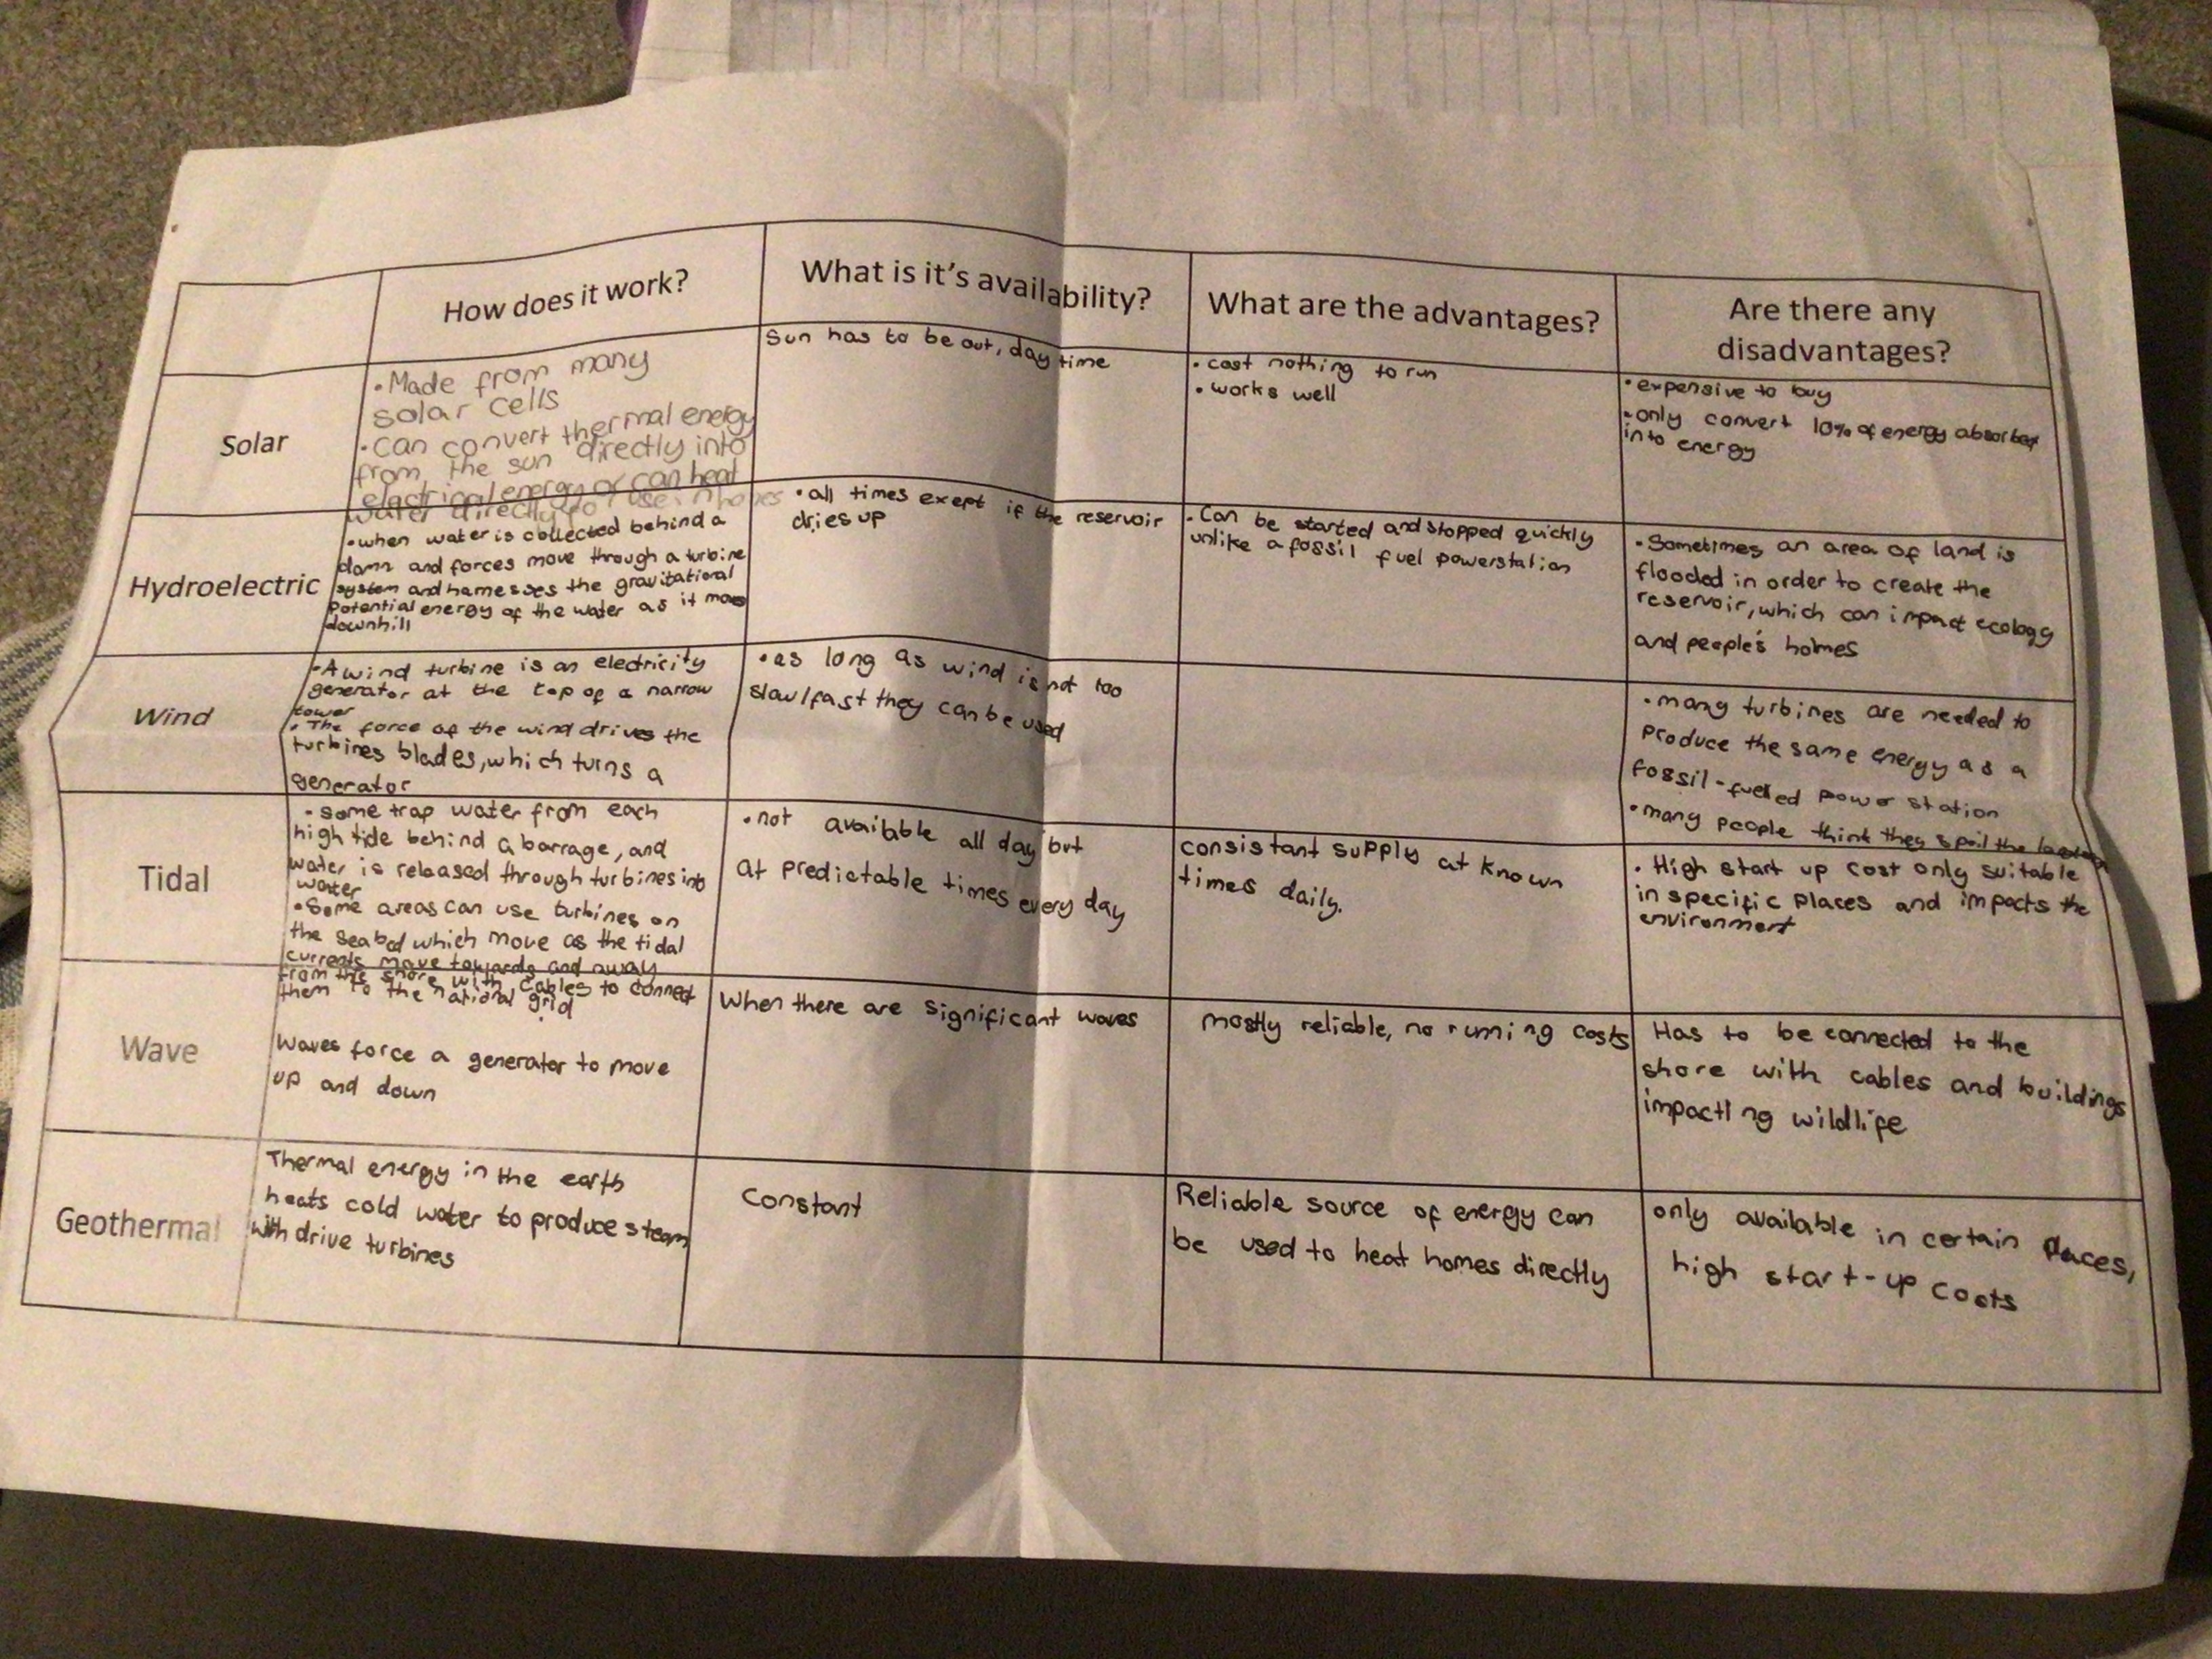 How does it work?
What is it's availability?
What are the advantages?
Are there any
disadvantages?
Solar
• Made from many
solar cells
• can convert thermal energy
from the sun directly into
electrical energy or can heat
water directly for use in homes
Sun has to be out, day time
• cost nothing to run
• works well
• expensive to buy
• only convert 10% of energy absorbed
into energy
Hydroelectric
• when water is collected behind a
dam and forces move through a turbine
system and harnesses the gravitational
potential energy of the water as it moves
downhill
• all times exept if the reservoir
dries up
• Can be started and stopped quickly
unlike a fossil fuel powerstation
• Sometimes an area of land is
flooded in order to create the
reservoir, which can impact ecology
and people's homes
Wind
• A wind turbine is an electricity
generator at the top of a narrow
tower
• The force of the wind drives the
turbines blades, which turns a
generator
• as long as wind is not too
slow/fast they can be used
• many turbines are needed to
produce the same energy as a
fossil-fuelled power station
• many people think they spoil the
Tidal
• some trap water from each
high tide behind a barrage, and
water is released through turbines into
water
• Some areas can use turbines on
the seabed which move as the tidal
currents move towards and away
from the shore with cables to connect
them to the national grid
• not available all day but
at predictable times every day
consistant supply at known
times daily.
• High start up cost only suitable
in specific places and impacts the
environment
Wave
Waves force a generator to move
up and down
When there are significant waves
mostly reliable, no running costs
Has to be connected to the
shore with cables and buildings
impacting wildlife
Geothermal
Thermal energy in the earth
heats cold water to produce steam
with drive turbines
Constant
Reliable source of energy can
be used to heat homes directly
only available in certain places,
high start-up costs